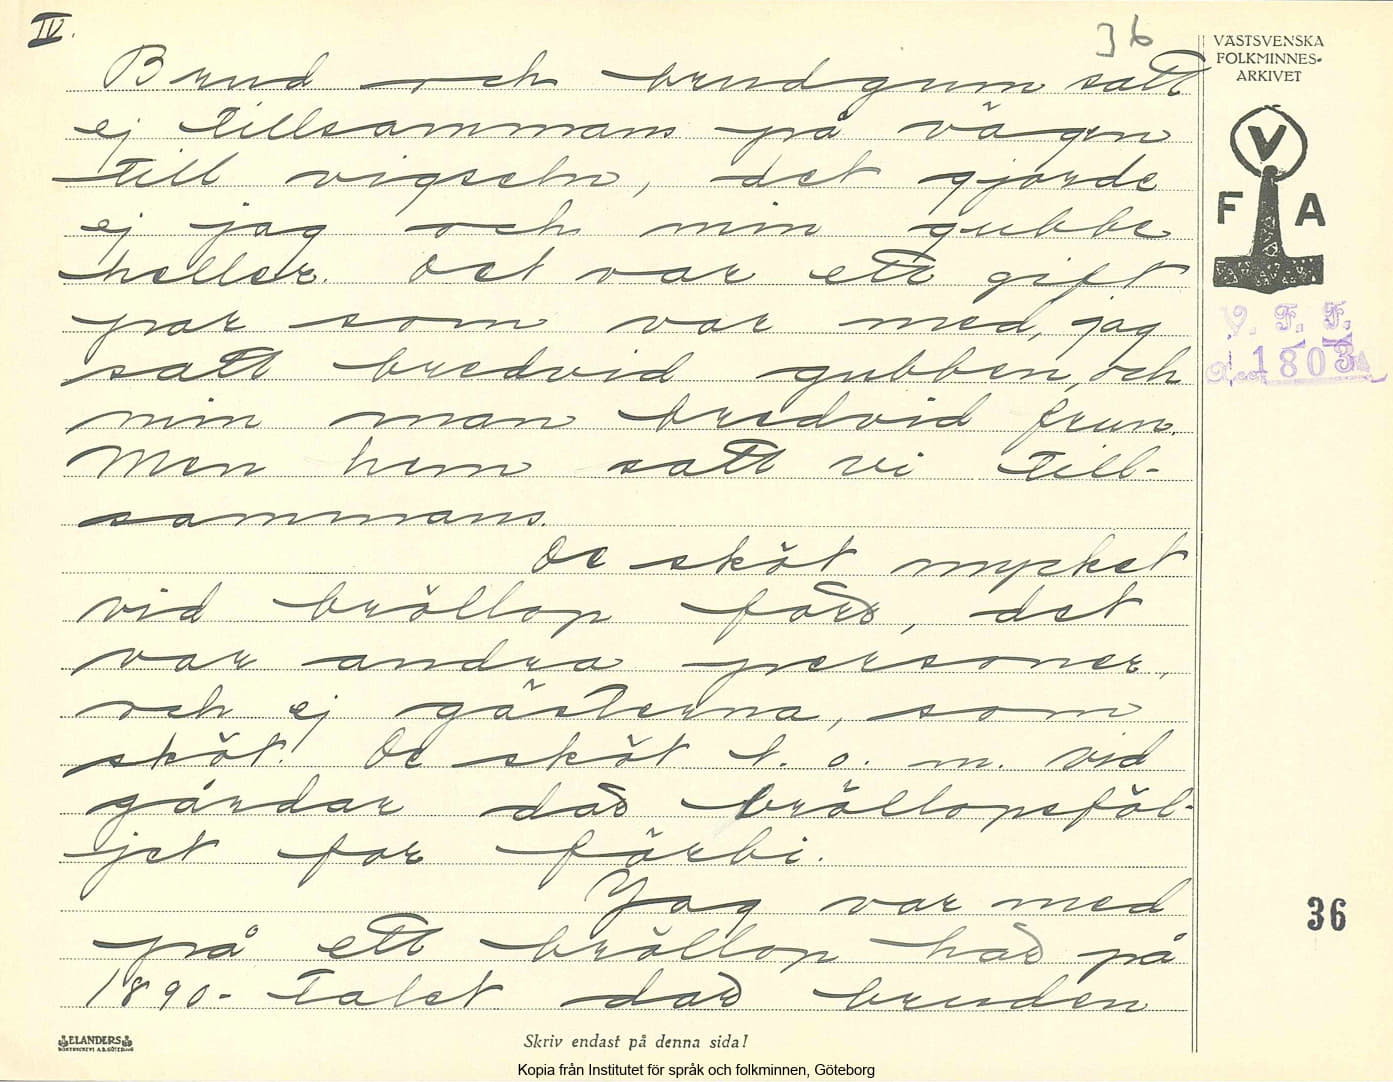 IV.
36
VÄSTSVENSKA
FOLKMINNES-
ARKIVET
V
F A
V. F. F.
1803
Brud och brudgum satt
ej tillsammans på vägen
till vigseln, det gjorde
ej jag och min gubbe
heller. Det var ett gift
par som var med, jag
satt bredvid gubben, och
min man bredvid frun.
Men hem satt vi till-
sammans.
De sköt mycket
vid bröllop förr, det
var andra personer,
och ej gästerna, som
sköt. De sköt t. o. m. vid
gårdar där bröllopsföl-
jet for förbi.
Jag var med
på ett bröllop här på
1890-talet där bruden
36
ELANDERS
Skriv endast på denna sida!
Kopia från Institutet för språk och folkminnen, Göteborg